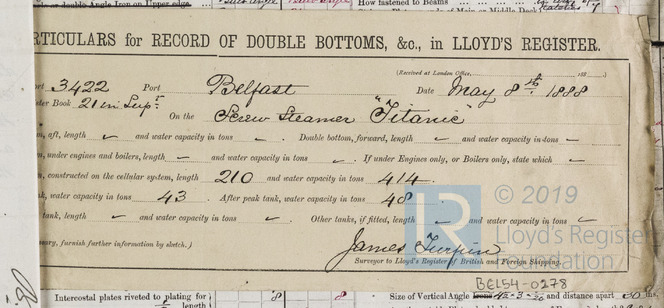 or double Angle Iron on Upper edge
How fastened to Beams
RTICULARS for RECORD OF DOUBLE BOTTOMS, &c., in LLOYD'S REGISTER.
(Received at London Office, 188 )
ort 3422 Port Belfast Date May 8th 1888
ster Book 21 in Supt On the Screw Steamer "Titanic"
m, aft, length ✓ and water capacity in tons ✓ . Double bottom, forward, length ✓ and water capacity in tons ✓
m, under engines and boilers, length ✓ and water capacity in tons ✓ . If under Engines only, or Boilers only, state which ✓
m, constructed on the cellular system, length 210 and water capacity in tons 414.
nk, water capacity in tons 43 . After peak tank, water capacity in tons 48
tank, length ✓ and water capacity in tons ✓ . Other tanks, if fitted, length ✓ and water capacity in tons ✓
sary, furnish further information by sketch.)
James Turpin
Surveyor to Lloyd's Register of British and Foreign Shipping.
LR © 2019
Lloyd's Register
Foundation
BEL54-0278
Intercostal plates riveted to plating for length 8 8
Size of Vertical Angle Irons and distance apart